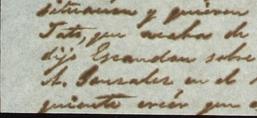 situacion y quieren
Tato, que acaba de
dijo Escandon sobre
A. Gonzales en el
quiente creer que